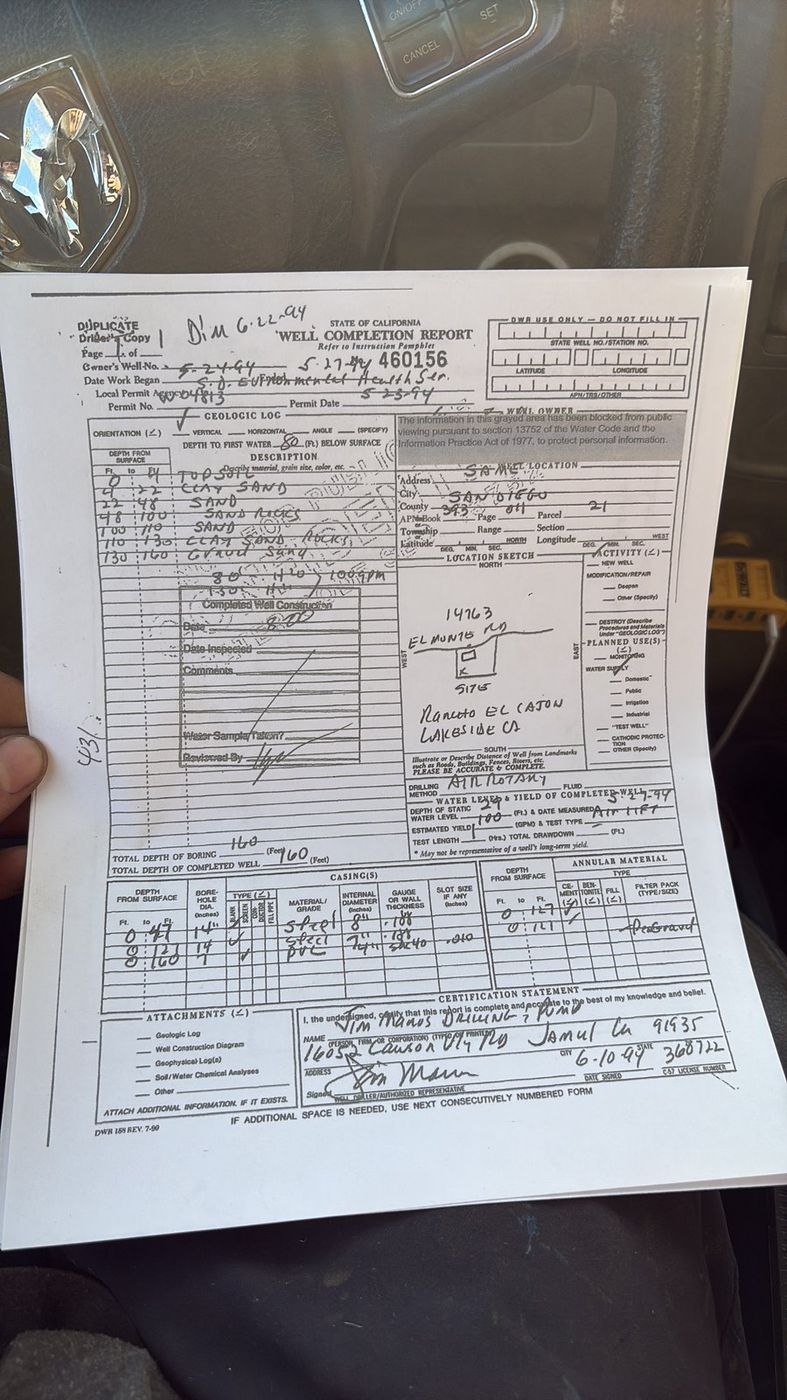 ON/OFF
SET
CANCEL
DUPLICATE
Driller's Copy
Page 1 of
Dim 6-22-94
STATE OF CALIFORNIA
WELL COMPLETION REPORT
Refer to Instruction Pamphlet
DWR USE ONLY — DO NOT FILL IN
STATE WELL NO./STATION NO.
LATITUDE
LONGITUDE
APN/TRS/OTHER
Owner's Well No.
5-24-94
5-27-94
460156
Date Work Began
S.D. Environmental Health Ser.
Local Permit
Permit No.
Permit Date
5-23-94
GEOLOGIC LOG
WELL OWNER
ORIENTATION (∠)
VERTICAL
HORIZONTAL
ANGLE
(SPECIFY)
DEPTH TO FIRST WATER 80 (Ft.) BELOW SURFACE
The information in this grayed area has been blocked from public
viewing pursuant to section 13752 of the Water Code and the
Information Practice Act of 1977, to protect personal information.
DEPTH FROM
SURFACE
DESCRIPTION
Ft. to Ft.
Describe material, grain size, color, etc.
0 4 TOP SOIL
4 22 CLAY SAND
22 48 SAND
48 100 SAND ROCKS
100 110 SAND
110 130 CLAY SAND ROCKS
130 160 Gravel Sand
WELL LOCATION
Address SAME
City SAN DIEGO
County
APN Book 393 Page 011 Parcel 21
Township Range Section
Latitude NORTH Longitude WEST
DEG. MIN. SEC. DEG. MIN. SEC.
80 H20
130 H20
100 gpm
Completed Well Construction
Date
Date Inspected
Comments
Water Sample Taken?
Reviewed By
431
LOCATION SKETCH
NORTH
14763
EL MONTE RD
WEST
EAST
X
SITE
Rancho EL CAJON
LAKESIDE CA
SOUTH
Illustrate or Describe Distance of Well from Landmarks
such as Roads, Buildings, Fences, Rivers, etc.
PLEASE BE ACCURATE & COMPLETE.
ACTIVITY (∠)
NEW WELL
MODIFICATION/REPAIR
Deepen
Other (Specify)
DESTROY (Describe
Procedures and Materials
Under "GEOLOGIC LOG")
PLANNED USE(S)
(∠)
MONITORING
WATER SUPPLY
Domestic
Public
Irrigation
Industrial
"TEST WELL"
CATHODIC PROTEC-
TION
OTHER (Specify)
DRILLING
METHOD AIR ROTARY FLUID
WATER LEVEL & YIELD OF COMPLETED WELL
DEPTH OF STATIC
WATER LEVEL 29 (Ft.) & DATE MEASURED 5-27-94
ESTIMATED YIELD* 100 (GPM) & TEST TYPE Air Lift
TEST LENGTH (Hrs.) TOTAL DRAWDOWN (Ft.)
* May not be representative of a well's long-term yield.
TOTAL DEPTH OF BORING 160 (Feet)
TOTAL DEPTH OF COMPLETED WELL 160 (Feet)
CASING(S)
DEPTH
FROM SURFACE
BORE-
HOLE
DIA.
(Inches)
TYPE (∠)
BLANK
SCREEN
CON-
DUCTOR
FILL PIPE
MATERIAL/
GRADE
INTERNAL
DIAMETER
(Inches)
GAUGE
OR WALL
THICKNESS
SLOT SIZE
IF ANY
(Inches)
Ft. to Ft.
0 47 14" Steel 8" .188
0 127 14 Steel 7" .188
0 160 7 PVC 4" Sch40 .010
DEPTH
FROM SURFACE
ANNULAR MATERIAL
TYPE
CE-
MENT
(∠)
BEN-
TONITE
(∠)
FILL
(∠)
FILTER PACK
(TYPE/SIZE)
Ft. to Ft.
0 127
0 121
PeaGravel
ATTACHMENTS (∠)
Geologic Log
Well Construction Diagram
Geophysical Log(s)
Soil/Water Chemical Analyses
Other
ATTACH ADDITIONAL INFORMATION, IF IT EXISTS.
CERTIFICATION STATEMENT
I, the undersigned, certify that this report is complete and accurate to the best of my knowledge and belief.
NAME Jim Manos DRILLING & PUMP
(PERSON, FIRM, OR CORPORATION) (TYPED OR PRINTED)
16052 Lawson Vly RD Jamul Ca 91935
ADDRESS
CITY STATE
Signed
WELL DRILLER/AUTHORIZED REPRESENTATIVE
6-10-94
DATE SIGNED
360722
C-57 LICENSE NUMBER
DWR 188 REV. 7-90
IF ADDITIONAL SPACE IS NEEDED, USE NEXT CONSECUTIVELY NUMBERED FORM